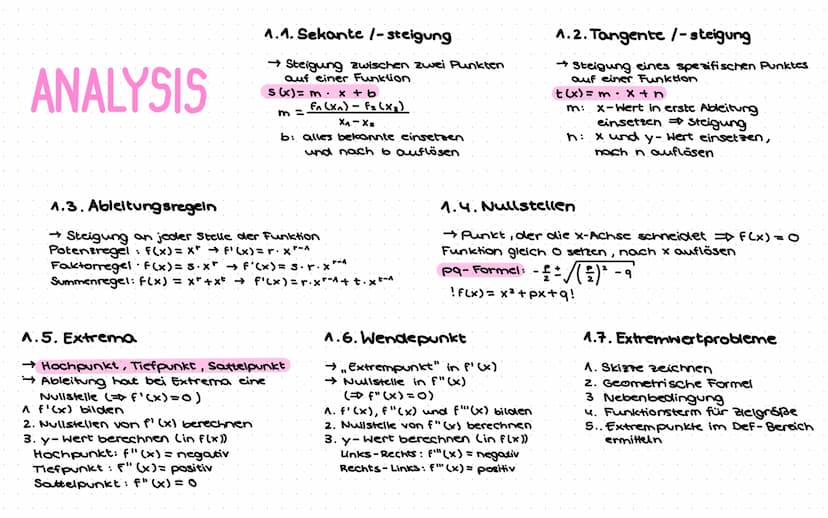 ANALYSIS
1.1. Sekante /-steigung
→ Steigung zwischen zwei Punkten
auf einer Funktion
s(x)= m · x + b
m = f₁(x₁) - f₂(x₂) / x₁-x₂
b: alles bekannte einsetzen
und nach b auflösen
1.2. Tangente /-steigung
→ Steigung eines spezifischen Punktes
auf einer Funktion
t(x) = m · x + n
m: x-Wert in erste Ableitung
einsetzen ⇒ Steigung
n: x und y-Wert einsetzen,
nach n auflösen
1.3. Ableitungsregeln
→ Steigung an jeder Stelle der Funktion
Potenzregel : f(x) = xʳ → f'(x) = r · xʳ⁻¹
Faktorregel · f(x) = s · xʳ → f'(x) = s · r · xʳ⁻¹
Summenregel: f(x) = xʳ+xᵗ → f'(x) = r·xʳ⁻¹+ t·xᵗ⁻¹
1.4. Nullstellen
→ Punkt, der die x-Achse schneidet ⇒ f(x) = 0
Funktion gleich 0 setzen, nach x auflösen
pq-Formel: -p/2 ± √((p/2)² - q)
! f(x) = x² + px + q !
1.5. Extrema
→ Hochpunkt, Tiefpunkt, Sattelpunkt
→ Ableitung hat bei Extrema eine
Nullstelle (⇒ f'(x) = 0)
1 f'(x) bilden
2. Nullstellen von f'(x) berechnen
3. y-Wert berechnen (in f(x))
Hochpunkt: f"(x) = negativ
Tiefpunkt : f"(x) = positiv
Sattelpunkt : f"(x) = 0
1.6. Wendepunkt
→ „Extrempunkt" in f'(x)
→ Nullstelle in f"(x)
(⇒ f"(x) = 0)
1. f'(x), f"(x) und f'''(x) bilden
2. Nullstelle von f"(x) berechnen
3. y-Wert berechnen (in f(x))
Links-Rechts : f'''(x) = negativ
Rechts-Links: f'''(x) = positiv
1.7. Extremwertprobleme
1. Skizze zeichnen
2. Geometrische Formel
3 Nebenbedingung
4. Funktionsterm für Zielgröße
5.. Extrempunkte im Def-Bereich
ermitteln